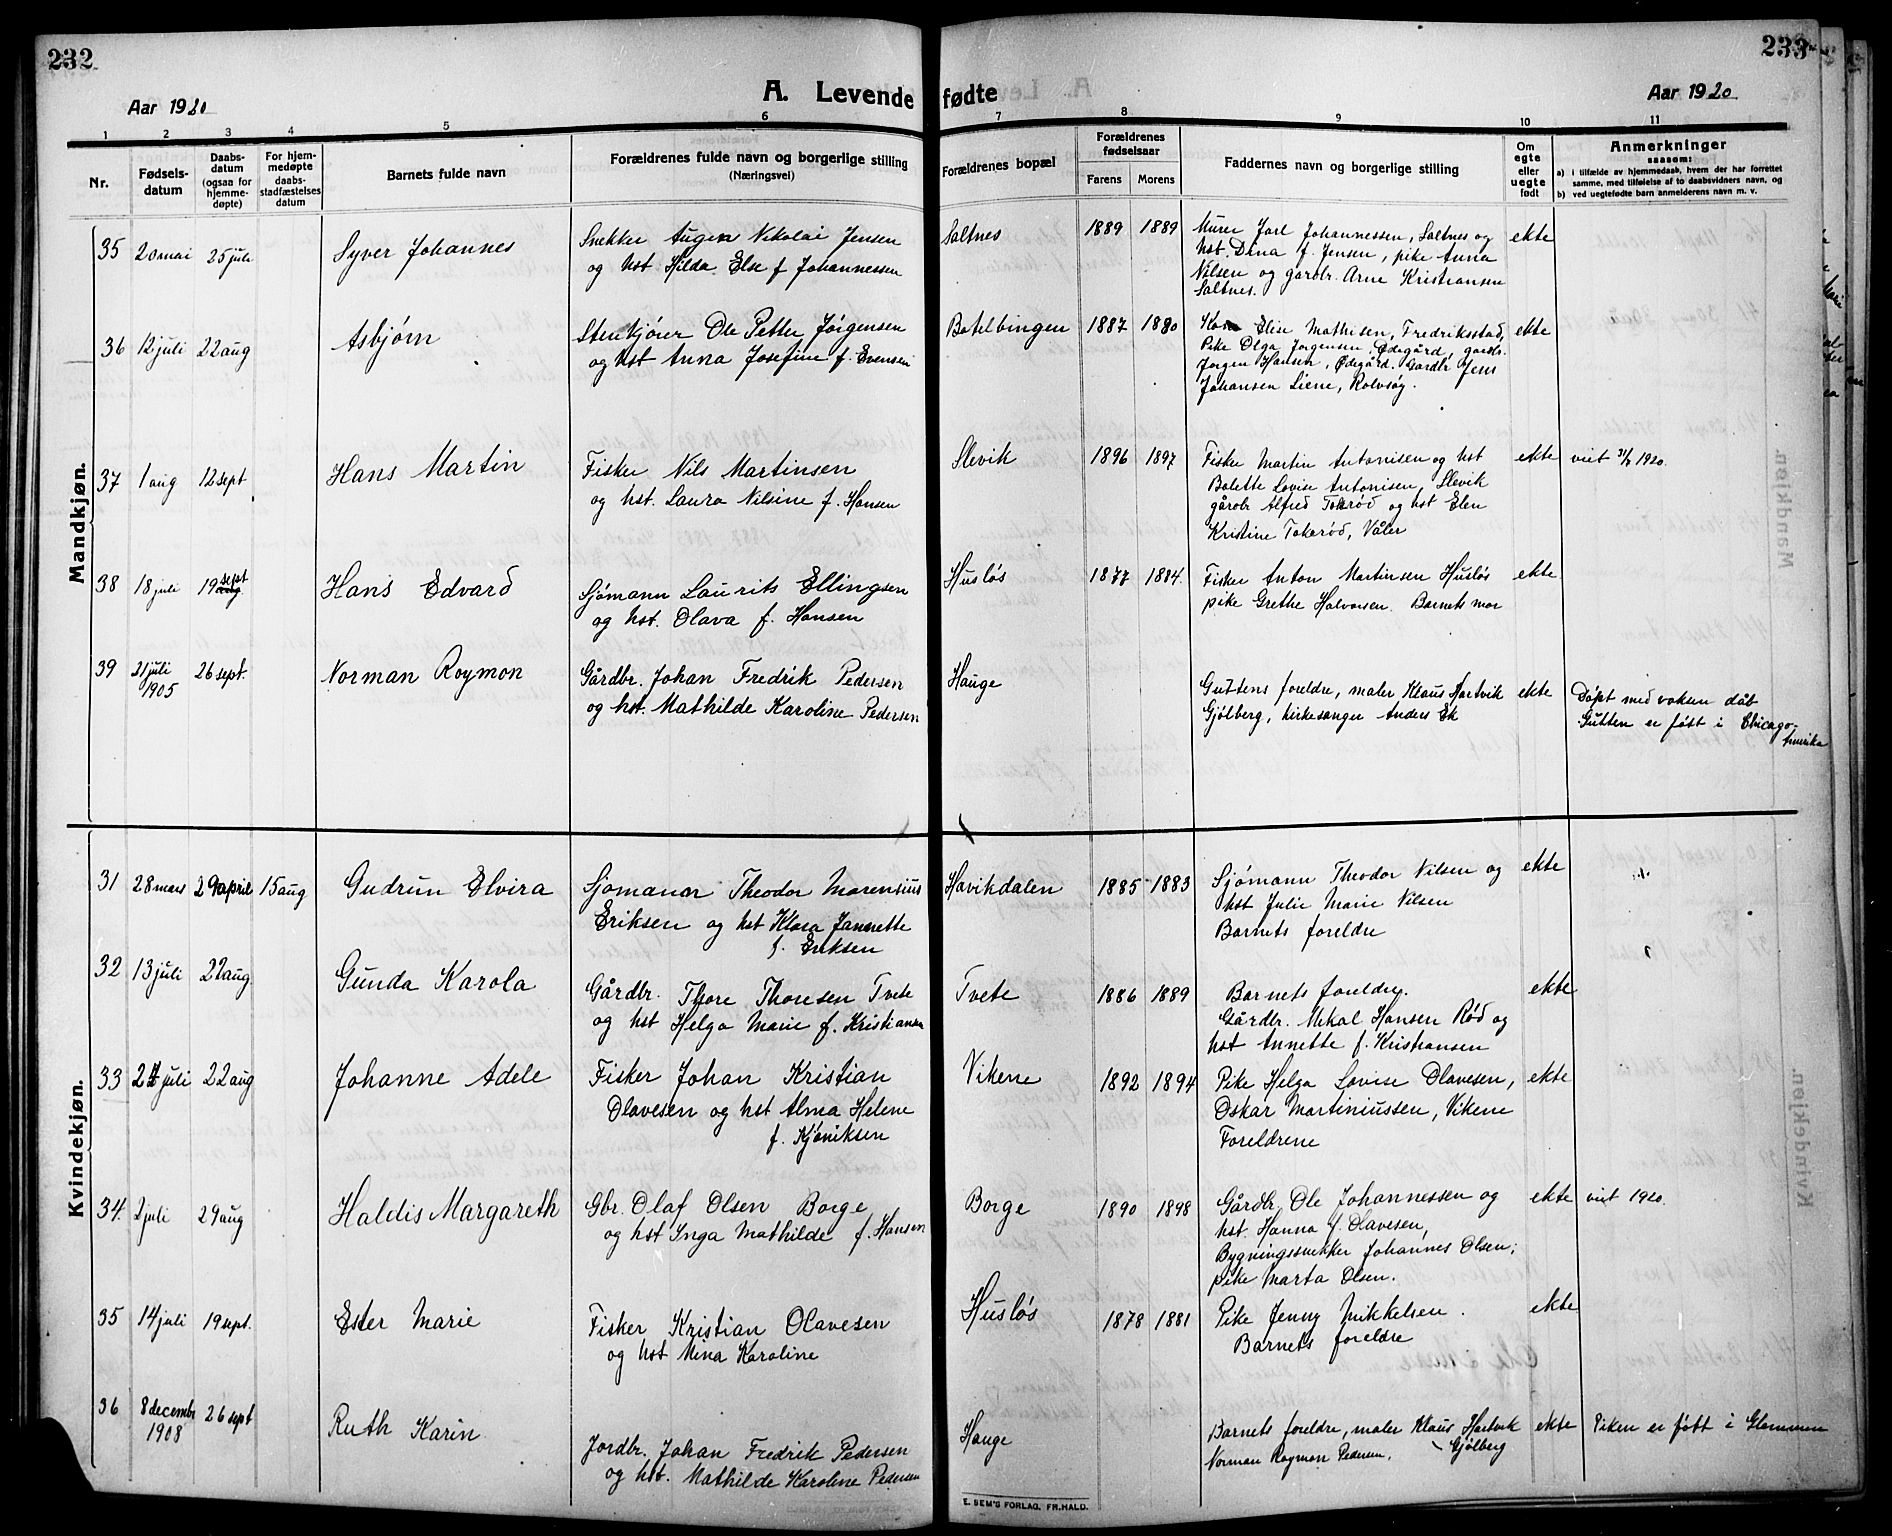 232
233
A. Levende fødte
Aar 1920
Aar 1920
1 2 3 4 5 6 7 8 9 10 11
Nr.
Fødsels-
datum
Daabs-
datum
(ogsaa for
hjemme-
døpte)
For hjem-
medøpte
daabs-
stadfæstelses
datum
Barnets fulde navn
Forældrenes fulde navn og borgerlige stilling
(Næringsvei)
Forældrenes bopæl
Forældrenes
fødselsaar
Farens Morens
Faddernes navn og borgerlige stilling
Om
egte
eller
uegte
født
Anmerkninger
saasom:
a) i tilfælde av hjemmedaab, hvem der har forrettet
samme, med tilføielse af to daabsvidners navn, og
b) ved uegtefødte barn anmelderens navn m. v.
Mandkjøn.
35 20 mai 25 juli Syver Johannes
Snekker Augen Nikolai Jensen
og hst Hilda Else f Johannessen
Saltnes 1889 1889
Murer Jarl Johannessen, Saltnes og
hst. Dina f. Jensen, pike Anna
Nilsen og gårdbr. Arne Kristiansen
Saltnes.
ekte
36 12 juli 22 aug Asbjørn
Stenkjører Ole Petter Jørgensen
og hst Anna Josefine f. Evensen
Botelbingen 1887 1880
Elise Mathisen, Fredriksstad,
Pike Olga Jørgensen, Ødegård, gårdb.
Jørgen Hansen, Ødegård. Gårdbr Jens
Johansen Liene, Rolvsøy.
ekte
37 1 aug 12 sept Hans Martin
Fisker Nils Martinsen
og hst. Laura Nilsine f. Hansen
Slevik 1896 1897
Fisker Martin Antonisen og hst
Bolette Lovise Antonisen, Slevik
gårdbr Alfred Tokerød og hst Elen
Kristine Tokerød, Våler
ekte
viet 31/1 1920.
38 18 juli 19 sept aug Hans Edvard
Sjømann Laurits Ellingsen
og hst. Olava f. Hansen
Husløs 1877 1884.
Fisker Anton Martinsen Husløs
pike Grethe Halvorsen. Barnets mor
ekte
39 21 juli
1905 26 sept. Norman Roymon
Gårdbr. Johan Fredrik Pedersen
og hst. Mathilde Karoline Pedersen
Hauge
Guttens foreldre, maler Klaus Hartvik
Gjølberg, kirkesanger Anders Ek
ekte
Døpt med voksen dåb
Gutten er født i Chicago-
Amerika
Kvindekjøn.
31 28 mars 29 april 15 aug Gudrun Elvira
Sjømann Theodor Morensius
Eriksen og hst Klara Jannette
f. Eriksen
Havikdalen 1885 1883
Sjømann Theodor Nilsen og
hst Julie Marie Nilsen
Barnets foreldre
ekte
32 13 juli 22 aug Gunda Karola
Gårdbr. Thore Thoresen Tvete
og hst Helga Marie f. Kristiansen
Tvete 1886 1889
Barnets foreldre.
Gårdbr. Mikal Hansen Rød og
hst Annette f. Kristiansen
ekte
33 24 juli 22 aug Johanne Adele
Fisker Johan Kristian
Olavesen og hst Alma Helene
f. Kjøniksen
Vikene 1892 1894
Pike Helga Lovise Olavesen,
Oskar Martiniussen, Vikene
Foreldrene
ekte
34. 2 juli 29 aug Haldis Margareth
Gbr. Olaf Olsen Borge
og hst Inga Mathilde f. Hansen
Borge 1890 1898
Gårdbr Ole Johannessen og
hst. Hanna f. Olavesen,
Bygningssnekker Johannes Olsen;
pike Marta Olsen.
ekte
viet 1920.
35 14 juli 19 sept. Ester Marie
Fisker Kristian Olavesen
og hst Mina Karoline
Husløs 1878 1881
Pike Jenny Mikkelsen.
Barnets foreldre
ekte
36 8 decembr
1908 26 sept Ruth Karin
Jordbr. Johan Fredrik Pedersen
og hst. Mathilde Karoline Pedersen
Hauge
Barnets foreldre, maler Klaus Hartvik
Gjølberg
Norman Roymon Pedersen.
ekte
Piken er født i Glemmen
E. SEM'S FORLAG. FR.HALD.